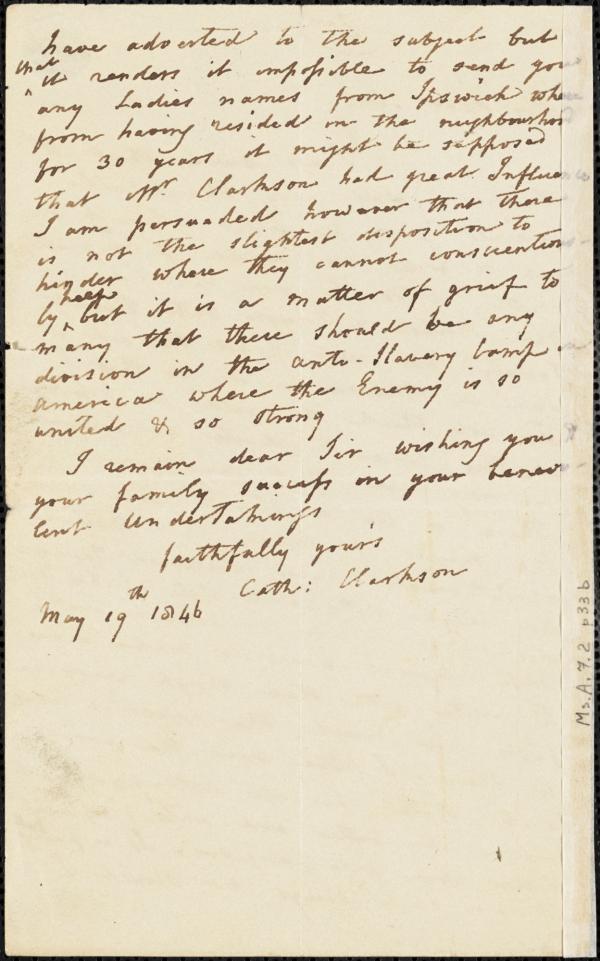 have adverted to the subject but
that
^ it renders it impossible to send you
any Ladies names from Ipswich whe
from having resided in the neighbourhoo
for 30 years it might be supposed
that Mr. Clarkson had great Influence
I am persuaded however that there
is not the slightest disposition to
hinder where they cannot conscientious
help
ly ^ but it is a matter of grief to
many that there should be any
division in the anti-Slavery Camp
America where the Enemy is so
united & so strong
I remain dear Sir wishing you
your family success in your benev
lent undertakings
faithfully your's
Cath: Clarkson
May 19th 1846
Ms.A.7.2 p33b